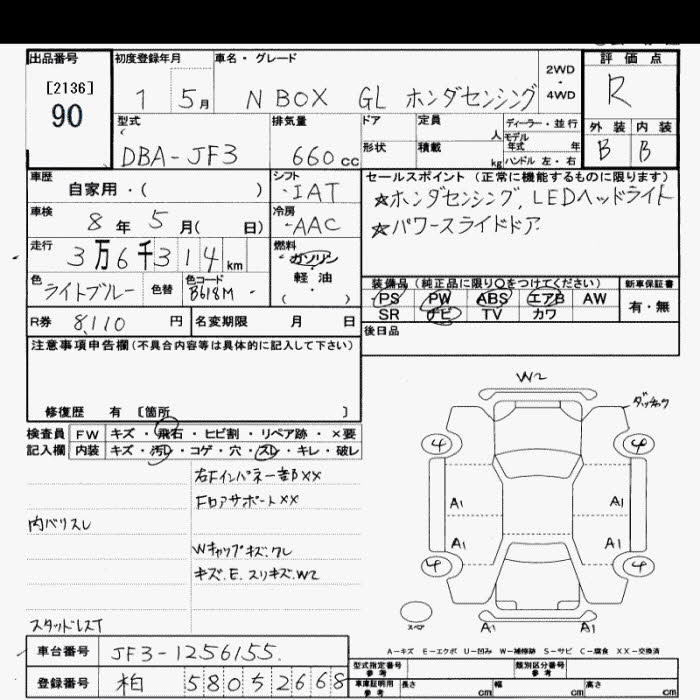 出品番号 初度登録年月 車名・グレード 評価点
[2136]
90
1 5月 N BOX GL ホンダセンシング 2WD・4WD R
型式 排気量 ドア 定員 人 ディーラー・並行 外装 内装
DBA-JF3 660cc 形状 積載 kg モデル年式 年 ハンドル 左・右 B B
車歴 自家用・( ) シフト ・IAT セールスポイント (正常に機能するものに限ります)
☆ホンダセンシング, LEDヘッドライト
車検 8年 5月( 日) 冷房 ・AAC ☆パワースライドドア
走行 3万6千314km 燃料 ガソリン
軽油
・( )
色 ライトブルー 色替 色コード B618M -
装備品 (純正品に限り○をつけてください) 新車保証書
PS PW ABS エアB AW 有・無
SR ナビ TV カワ
R券 8,110円 名変期限 月 日 後日品
注意事項申告欄 (不具合内容等は具体的に記入して下さい)
修復歴 有 〔箇所 〕
検査員 FW キズ・飛石・ヒビ割・リペア跡・×要
記入欄 内装 キズ・汚レ・コゲ・穴・スレ・キレ・破レ
右FインパネーキBXX
FロアサポートXX
内バリスレ
Wキャップキズ.ワレ
キズ.E.スリキズ.W2
スタッドレスT
W2
4 4
A1 A1
A1 A1
4 4
A1 A1
A-キズ E-エクボ U-凹み W-補修跡 S-サビ C-腐食 XX-交換済
車台番号 JF3-1256155
登録番号 柏 580 52668
型式指定番号 参考 類別区分番号 参考
車庫証明用 参考 長さ cm 幅 cm 高さ cm